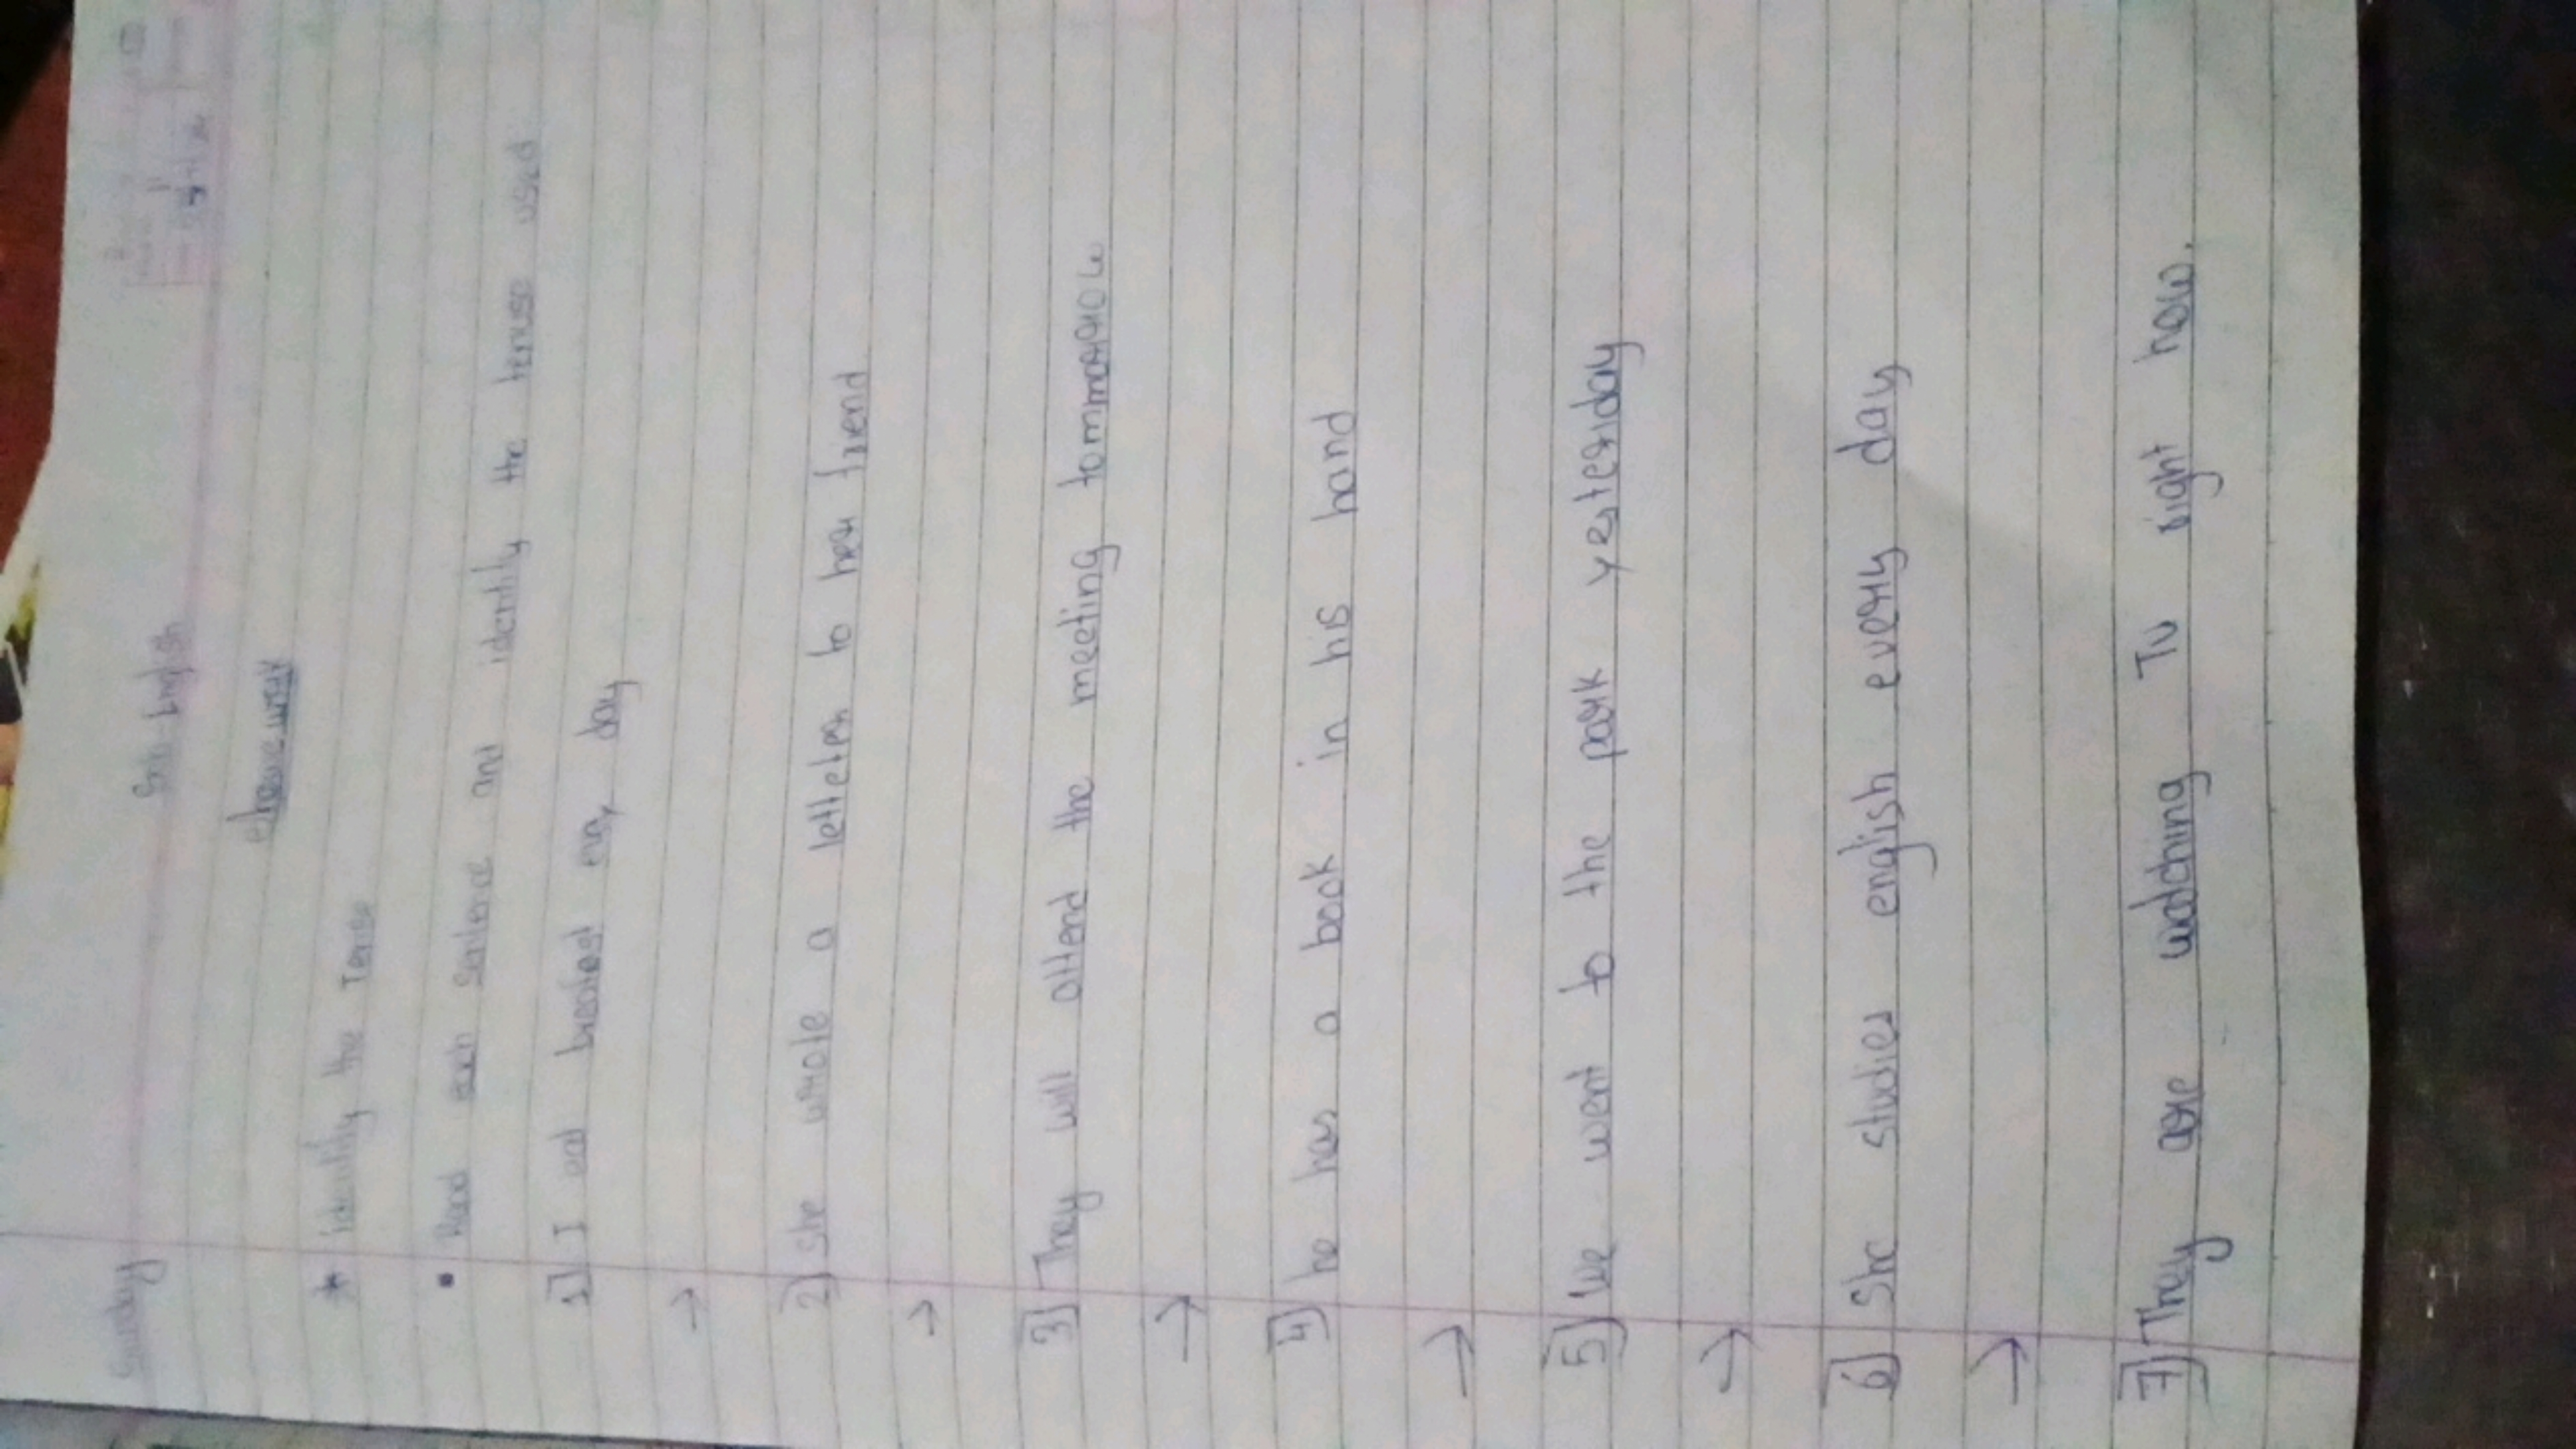 Sunday
Sub:- English
Homework
* identify the Tense
• Read each sentence and identify the tenuse used
1) I eat breakfast evry day
→
2) she wrote a letteter to her friend
→
3) They will attend the meeting tommorrow
→
4) he has a book in his hand
→
5) We went to the park yesterday
→
6) She studies english every day
→
7) They are watching TV right now.